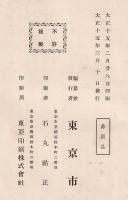 大正十五年二月廿八日印刷
大正十五年三月十日發行
非賣品
不許複製
編纂兼發行者
東京市
印刷者
石丸祐正
印刷所
東亞印刷株式會社